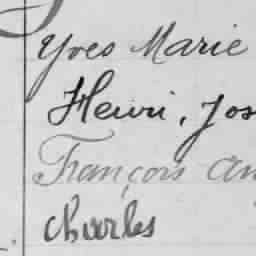 Yves Marie
Henri, Jos
François An
Charles